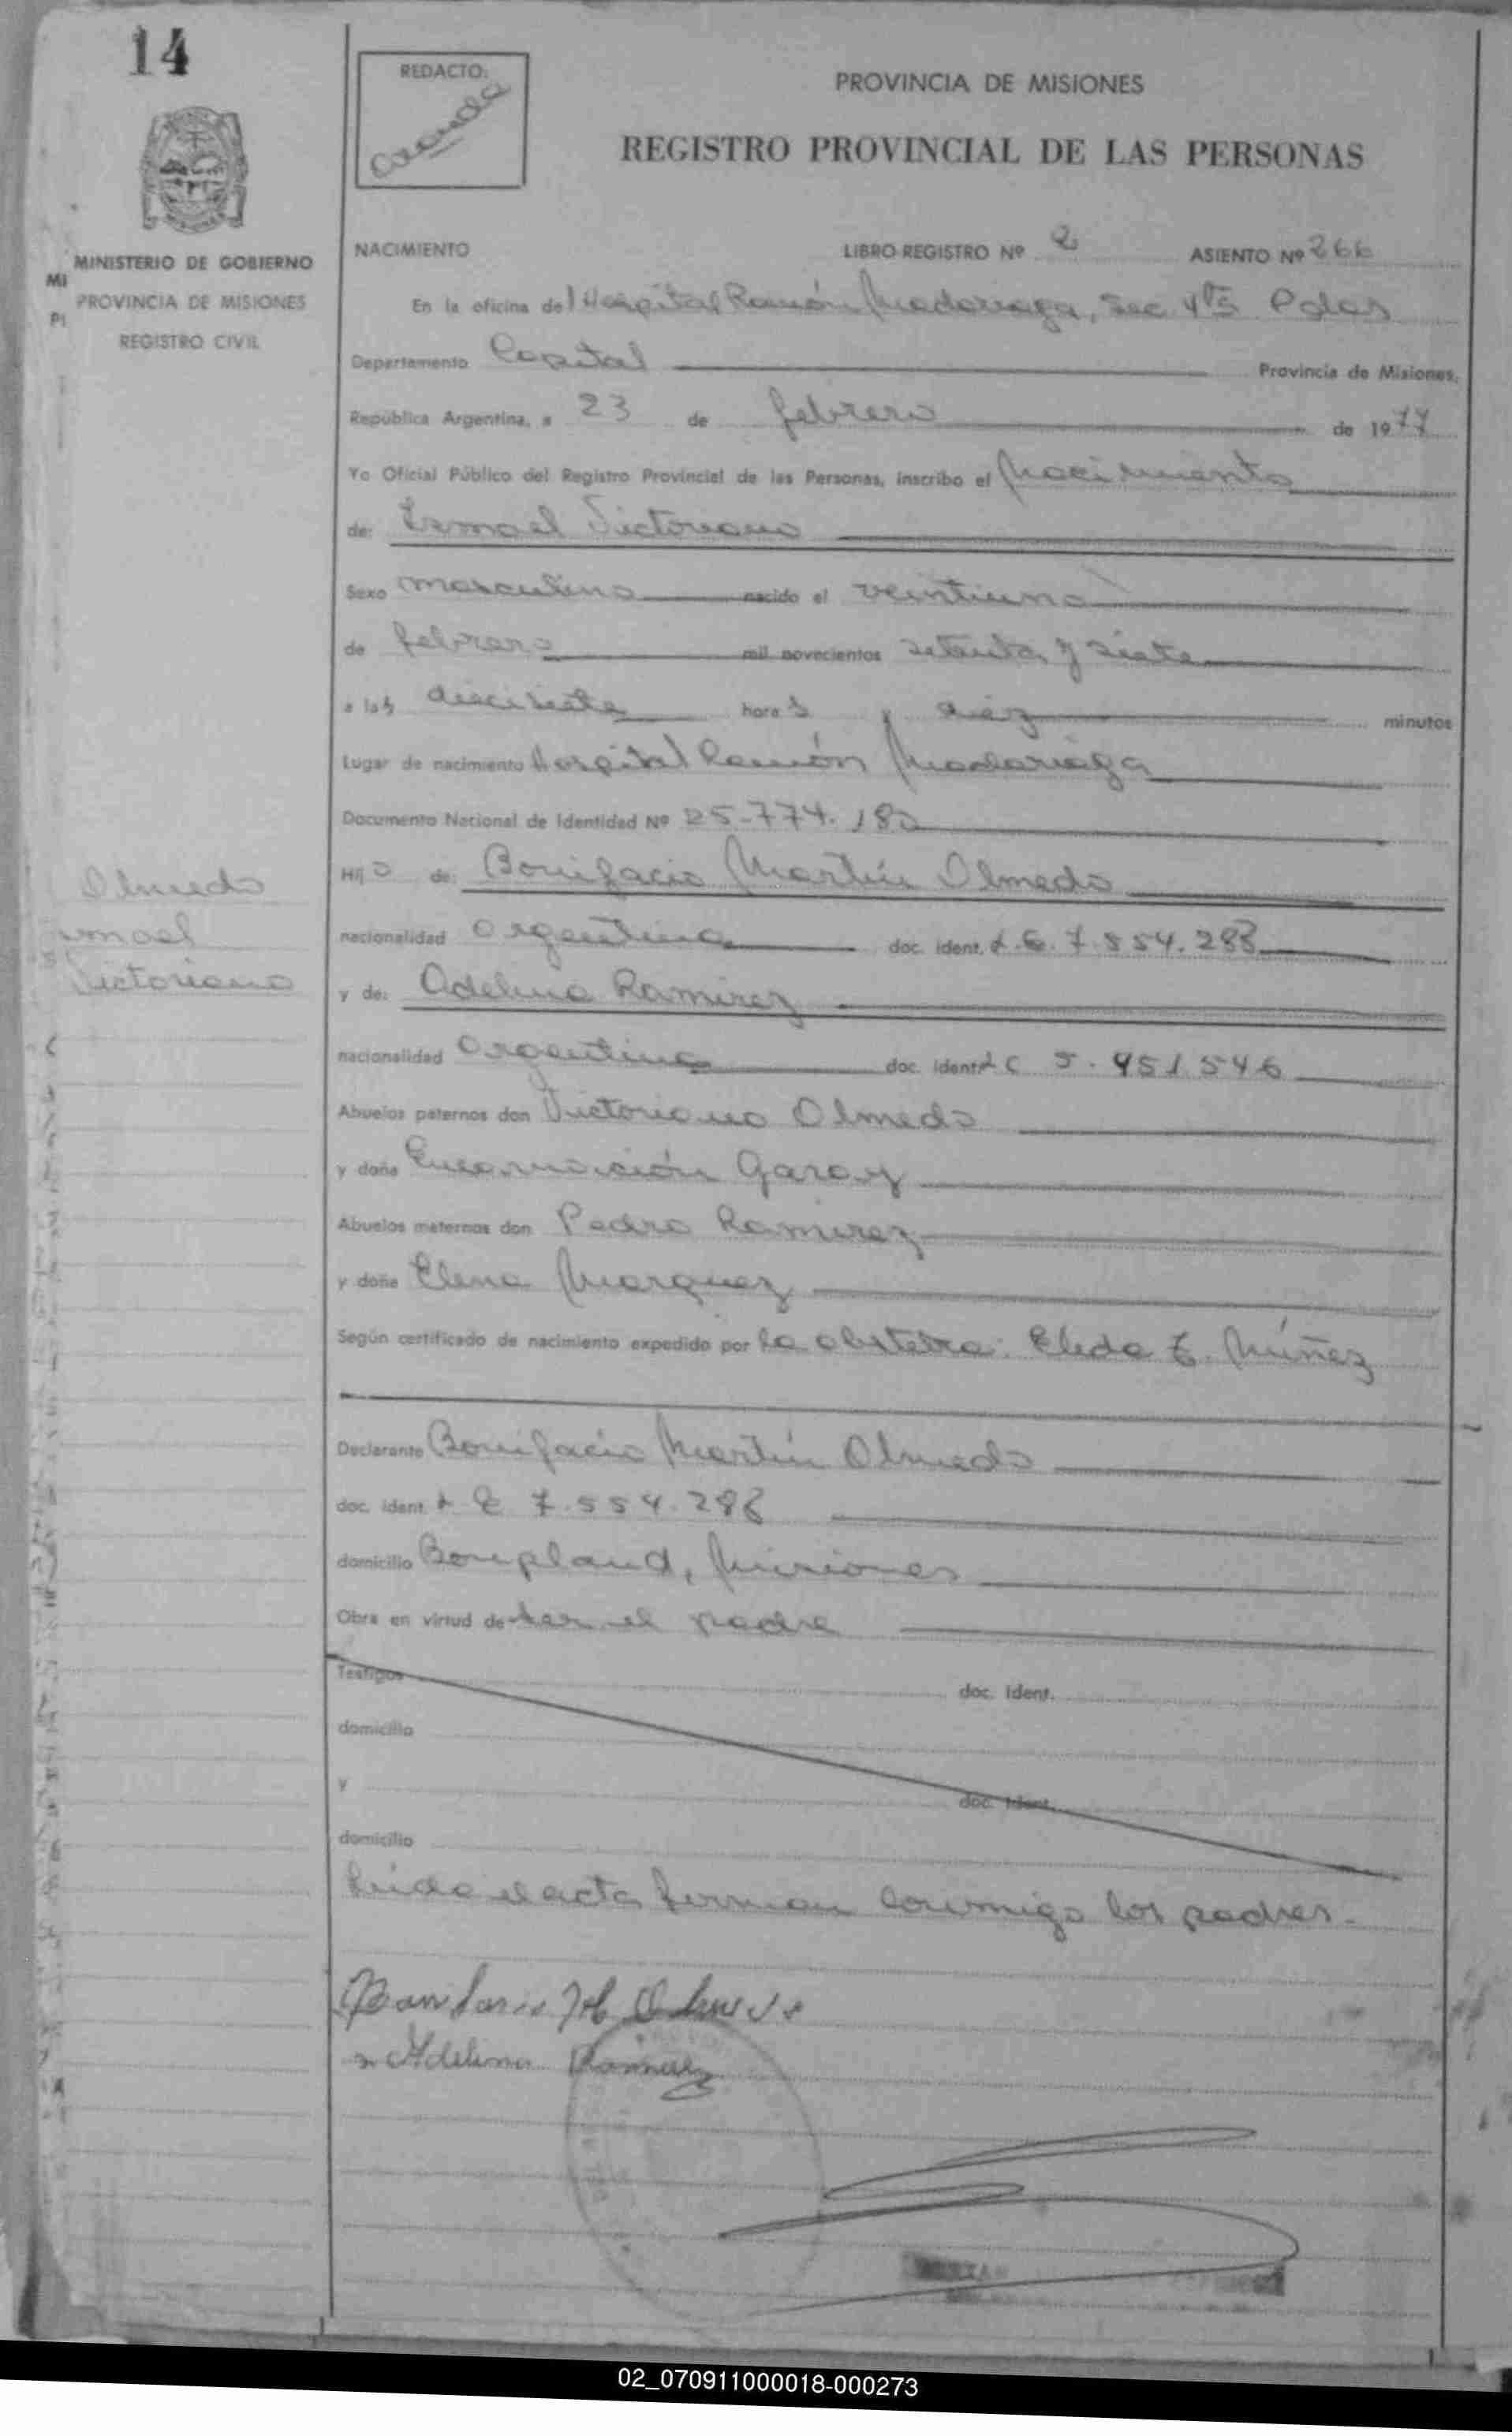 14
REDACTO:
PROVINCIA DE MISIONES
REGISTRO PROVINCIAL DE LAS PERSONAS
MINISTERIO DE GOBIERNO
PROVINCIA DE MISIONES
REGISTRO CIVIL
MI
PI
NACIMIENTO LIBRO-REGISTRO Nº 2 ASIENTO Nº 266
En la oficina del Hospital Ramón Madariaga, Sec 4ta Pdas
Departamento Capital Provincia de Misiones,
República Argentina, a 23 de febrero de 1977
Yo Oficial Público del Registro Provincial de las Personas, inscribo el Nacimiento
de: Ismael Victoriano
Sexo masculino nacido el veintiuno
de febrero mil novecientos setenta y siete
a las diecisiete horas y diez minutos
Lugar de nacimiento Hospital Ramón Madariaga
Documento Nacional de Identidad Nº 25.774.182
Hijo de: Bonifacio Martín Olmedo
nacionalidad argentina doc. ident. L.E. 7.554.286
y de: Adelina Ramirez
nacionalidad argentina doc. ident. L C 5.451.546
Abuelos paternos don Victoriano Olmedo
y doña Encarnación Garay
Abuelos maternos don Pedro Ramirez
y doña Elena Marquez
Según certificado de nacimiento expedido por la obstetra: Elida E. Núñez
Declarante Bonifacio Martín Olmedo
doc. ident. L E 7.554.286
domicilio Bonpland, Misiones
Obra en virtud de ser el padre
Testigos doc. ident.
domicilio
y doc. ident.
domicilio
Leida el acta firman conmigo los padres.
Olmedo
Ismael
Victoriano
Adelina Ramirez
02_070911000018-000273